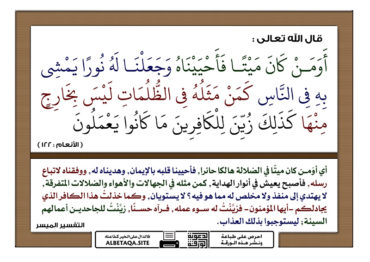 قال الله تعالى :
أَوَمَنْ كَانَ مَيْتًا فَأَحْيَيْنَاهُ وَجَعَلْنَا لَهُ نُورًا يَمْشِي
بِهِ فِي النَّاسِ كَمَنْ مَثَلُهُ فِي الظُّلُمَاتِ لَيْسَ بِخَارِجٍ
مِنْهَا كَذَلِكَ زُيِّنَ لِلْكَافِرِينَ مَا كَانُوا يَعْمَلُونَ
( الأنعام : ١٢٢ )
أي أوَمن كان ميتًا في الضلالة هالكا حائرا، فأحيينا قلبه بالإيمان، وهديناه له، ووفقناه لاتباع
رسله، فأصبح يعيش في أنوار الهداية، كمن مثله في الجهالات والأهواء والضلالات المتفرقة،
لا يهتدي إلى منفذ ولا مخلص له مما هو فيه؟ لا يستويان، وكما خذلتُ هذا الكافر الذي
يجادلكم -أيها المؤمنون- فزيَّنْتُ له سوء عمله، فرآه حسنًا، زيَّنْتُ للجاحدين أعمالهم
السيئة؛ ليستوجبوا بذلك العذاب.
التفسير الميسر
الدال على الخير كفاعله
ALBETAQA.SITE
احرص على طباعة
ونشر هذه الورقة